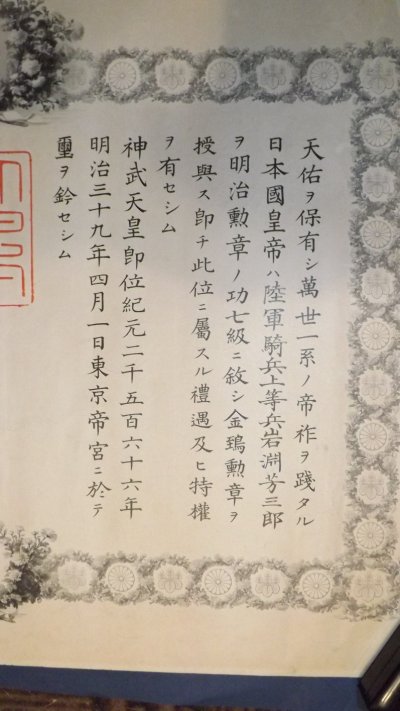 天佑ヲ保有シ萬世一系ノ帝祚ヲ踐タル
日本國皇帝ハ陸軍騎兵上等兵岩淵芳三郎
ヲ明治勲章ノ功七級ニ敘シ金鵄勲章ヲ
授與ス卽チ此位ニ屬スル禮遇及ヒ特權
ヲ有セシム
神武天皇卽位紀元二千五百六十六年
明治三十九年四月一日東京帝宮ニ於テ
璽ヲ鈐セシム